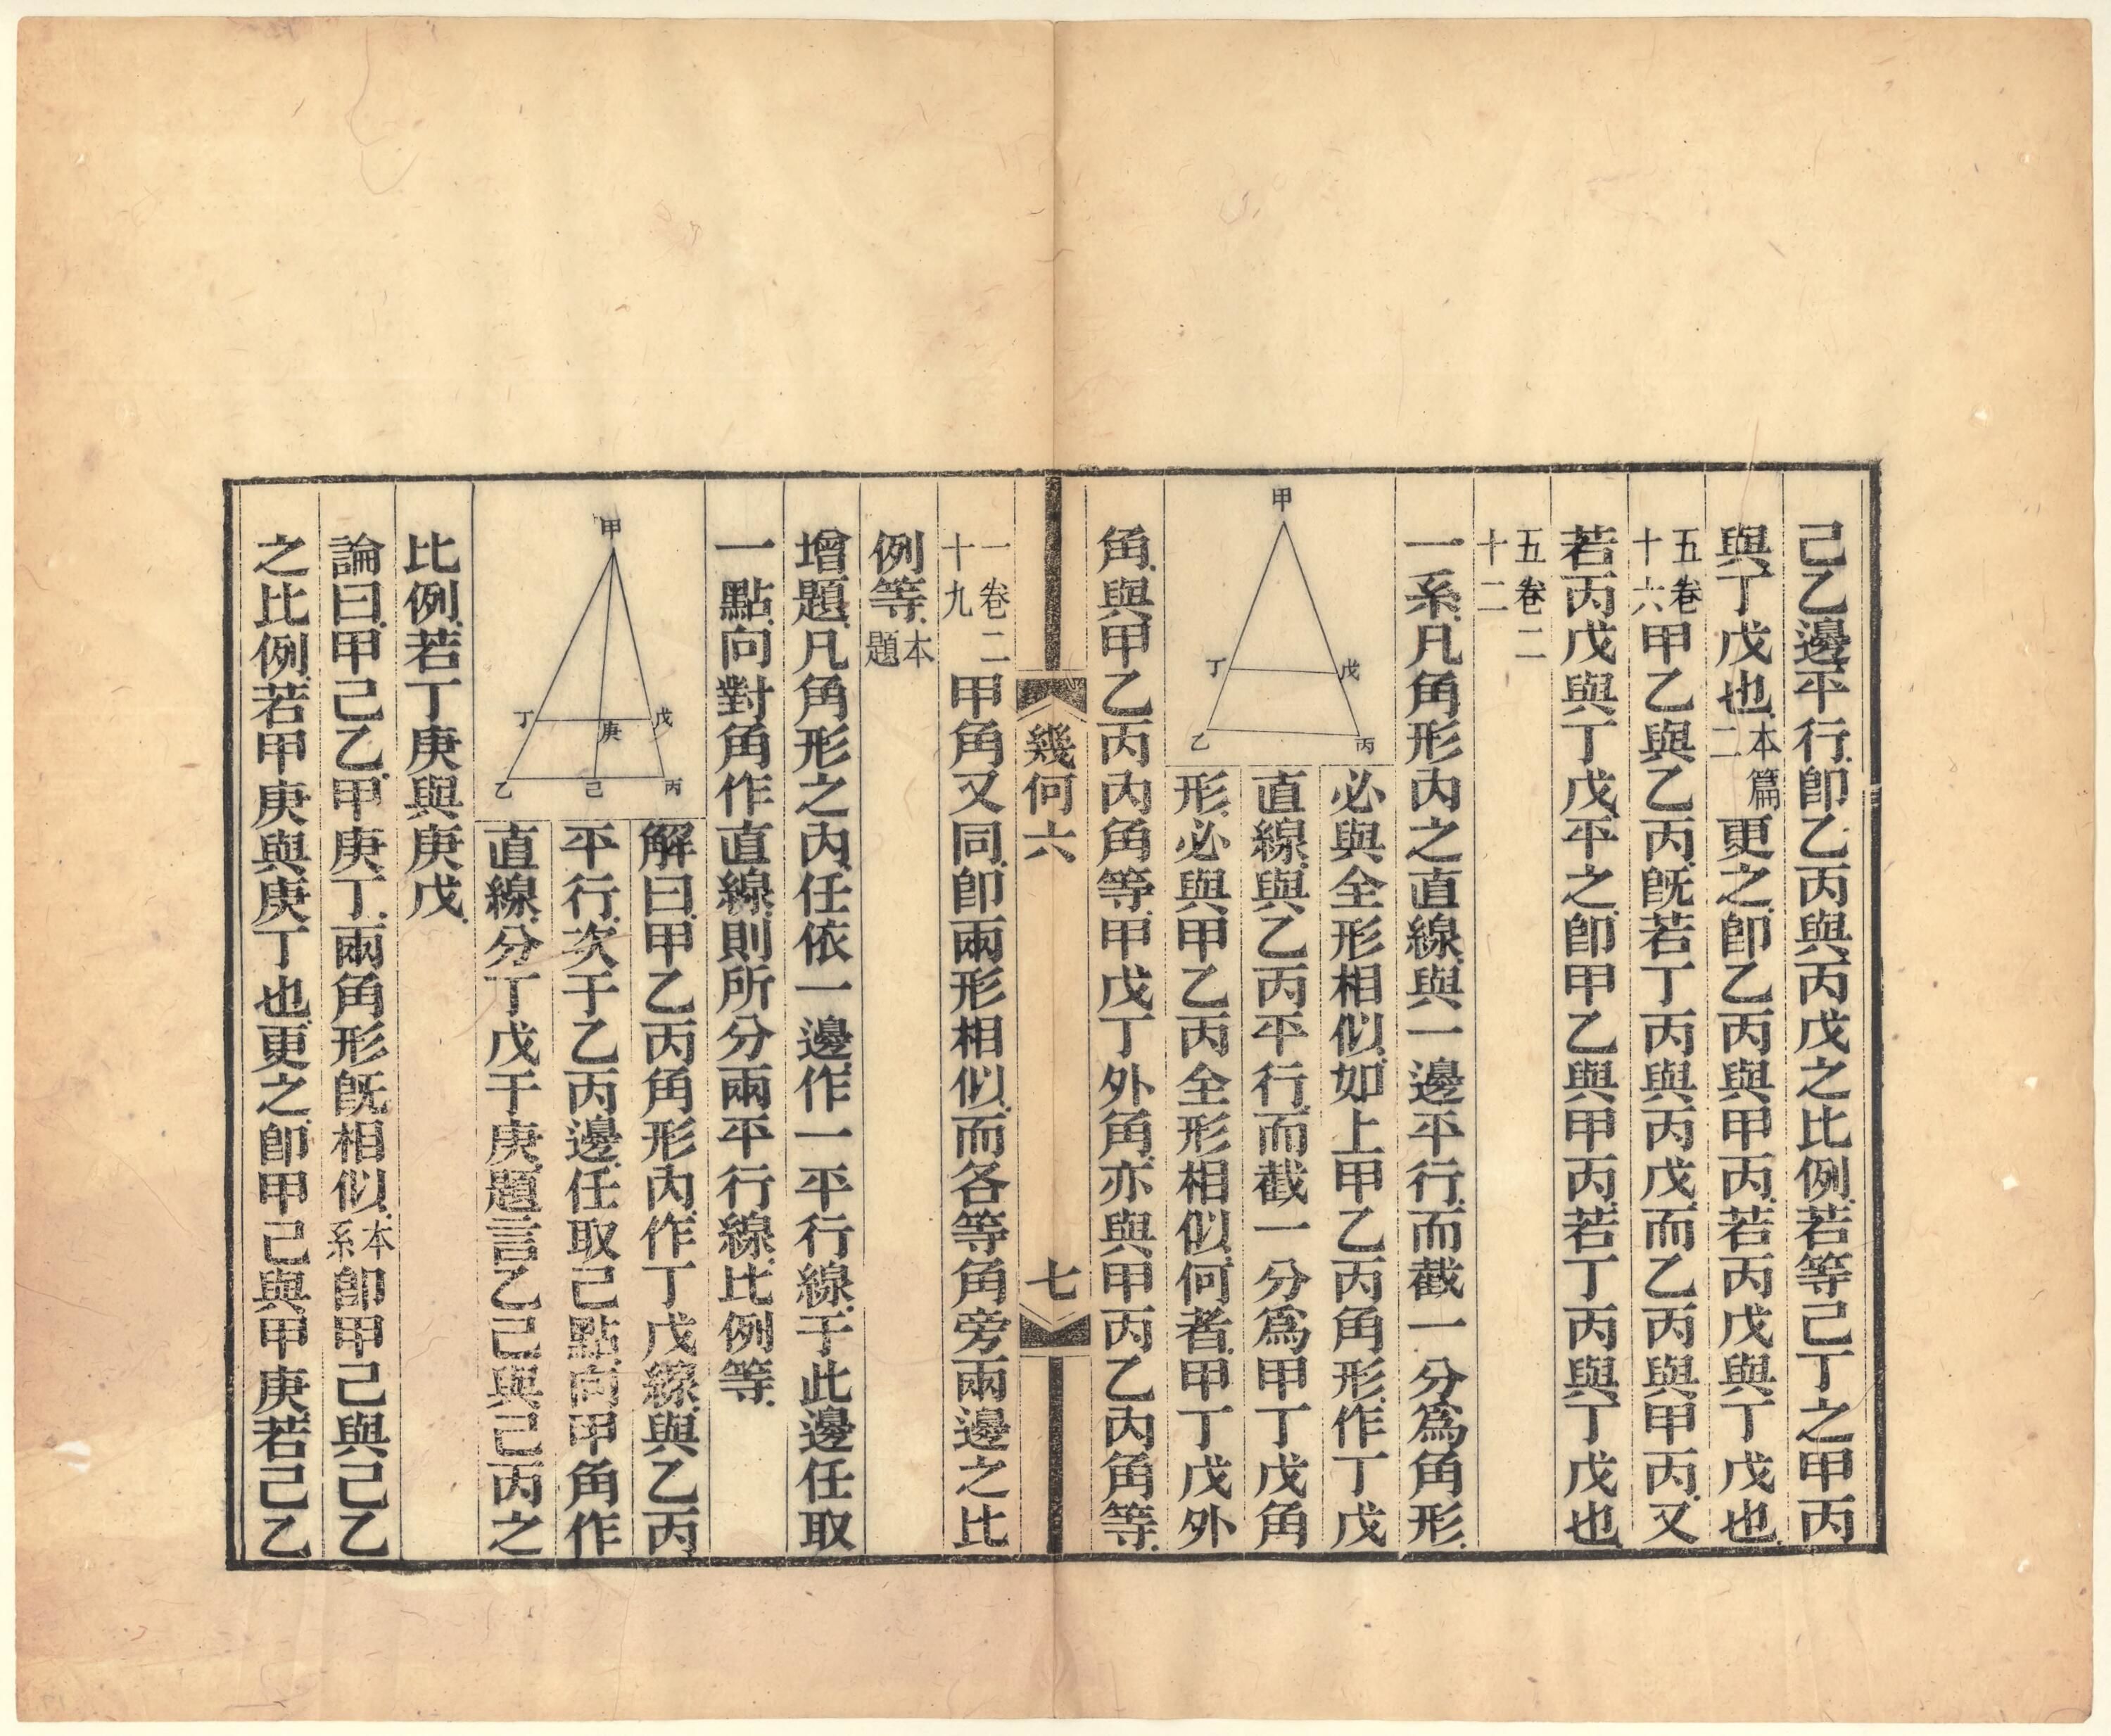 己乙邊平行卽乙丙與丙戊之比例若等己丁之甲丙
與丁戊也本篇二更之卽乙丙與甲丙若丙戊與丁戊也
五卷十六甲乙與乙丙旣若丁丙與丙戊而乙丙與甲丙又
若丙戊與丁戊平之卽甲乙與甲丙若丁丙與丁戊也
五卷二十二
一系凡角形內之直線與一邊平行而截一分爲角形
甲
丁
戊
乙
丙
必與全形相似如上甲乙丙角形作丁戊
直線與乙丙平行而截一分爲甲丁戊角
形必與甲乙丙全形相似何者甲丁戊外
角與甲乙丙內角等甲戊丁外角亦與甲丙乙內角等
幾何六
七
一卷二十九甲角又同卽兩形相似而各等角旁兩邊之比
例等本題
增題凡角形之內任依一邊作一平行線于此邊任取
一點向對角作直線則所分兩平行線比例等
甲
丁
庚
戊
乙
己
丙
解曰甲乙丙角形內作丁戊線與乙丙
平行次于乙丙邊任取己點向甲角作
直線分丁戊于庚題言乙己與己丙之
比例若丁庚與庚戊
論曰甲己乙甲庚丁兩角形旣相似本系卽甲己與己乙
之比例若甲庚與庚丁也更之卽甲己與甲庚若己乙